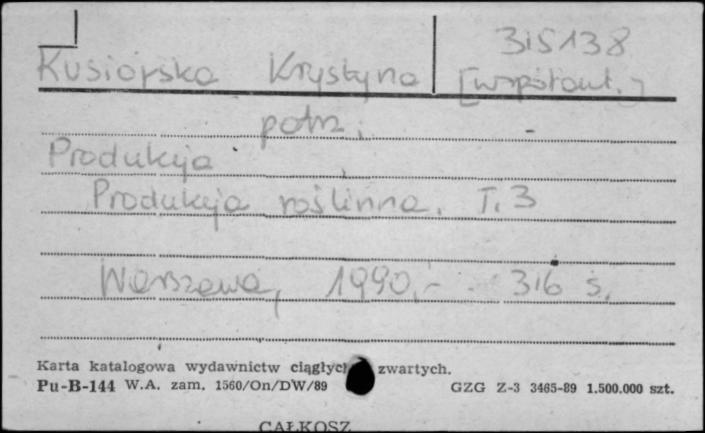 315138
Kusiorska Krystyna [współaut.]
patrz.
Produkcja
Produkcja roślinna. T. 3
Warszawa, 1990.- 316 s.
Karta katalogowa wydawnictw ciągłych zwartych.
Pu-B-144 W.A. zam. 1560/On/DW/89 GZG Z-3 3465-89 1.500.000 szt.
CAŁKOSZ